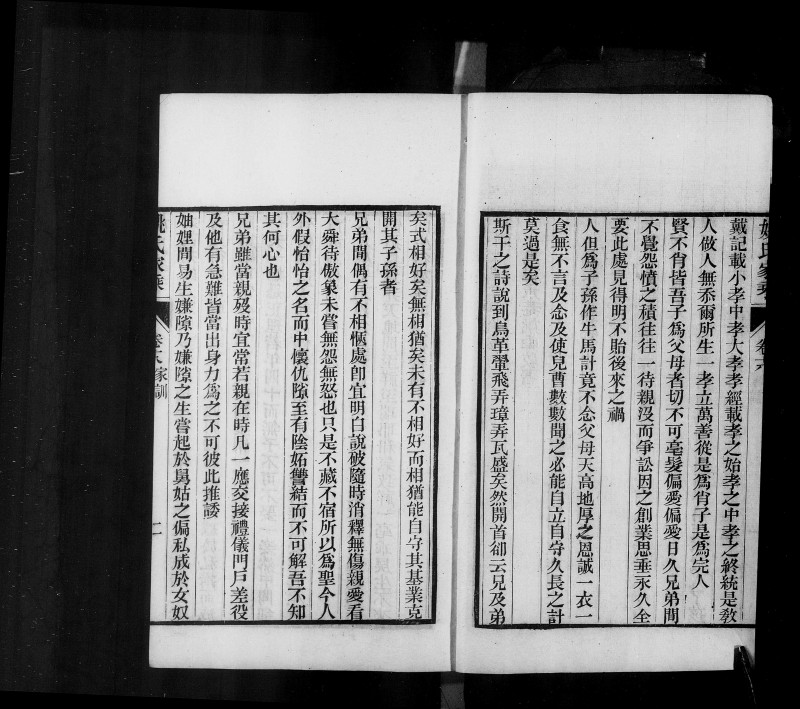 姚氏家乘 卷六
戴記載小孝中孝大孝孝經載孝之始孝之中孝之終統是教
人做人無忝爾所生一孝立萬善從是爲肖子是爲完人
賢不肖皆吾子爲父母者切不可毫髮偏愛偏愛日久兄弟間
不覺怨憤之積往往一待親沒而爭訟因之創業思垂永久全
要此處見得明不貽後來之禍
人但爲子孫作牛馬計竟不念父母天高地厚之恩誠一衣一
食無不言及念及使兒曹數數聞之必能自立自守久長之計
莫過是矣
斯干之詩說到鳥革翬飛弄璋弄瓦盛矣然開首卻云兄及弟
矣式相好矣無相猶矣未有不相好而相猶能自守其基業克
開其子孫者
兄弟間偶有不相愜處卽宜明白說破隨時消釋無傷親愛看
大舜待傲象未嘗無怨無怒也只是不藏不宿所以爲聖今人
外假怡怡之名而中懷仇隙至有陰妬讐結而不可解吾不知
其何心也
兄弟雖當親歿時宜常若親在時凡一應交接禮儀門戸差役
及他有急難皆當出身力爲之不可彼此推諉
妯娌間易生嫌隙乃嫌隙之生嘗起於舅姑之偏私成於女奴
姚氏家乘 家訓 二